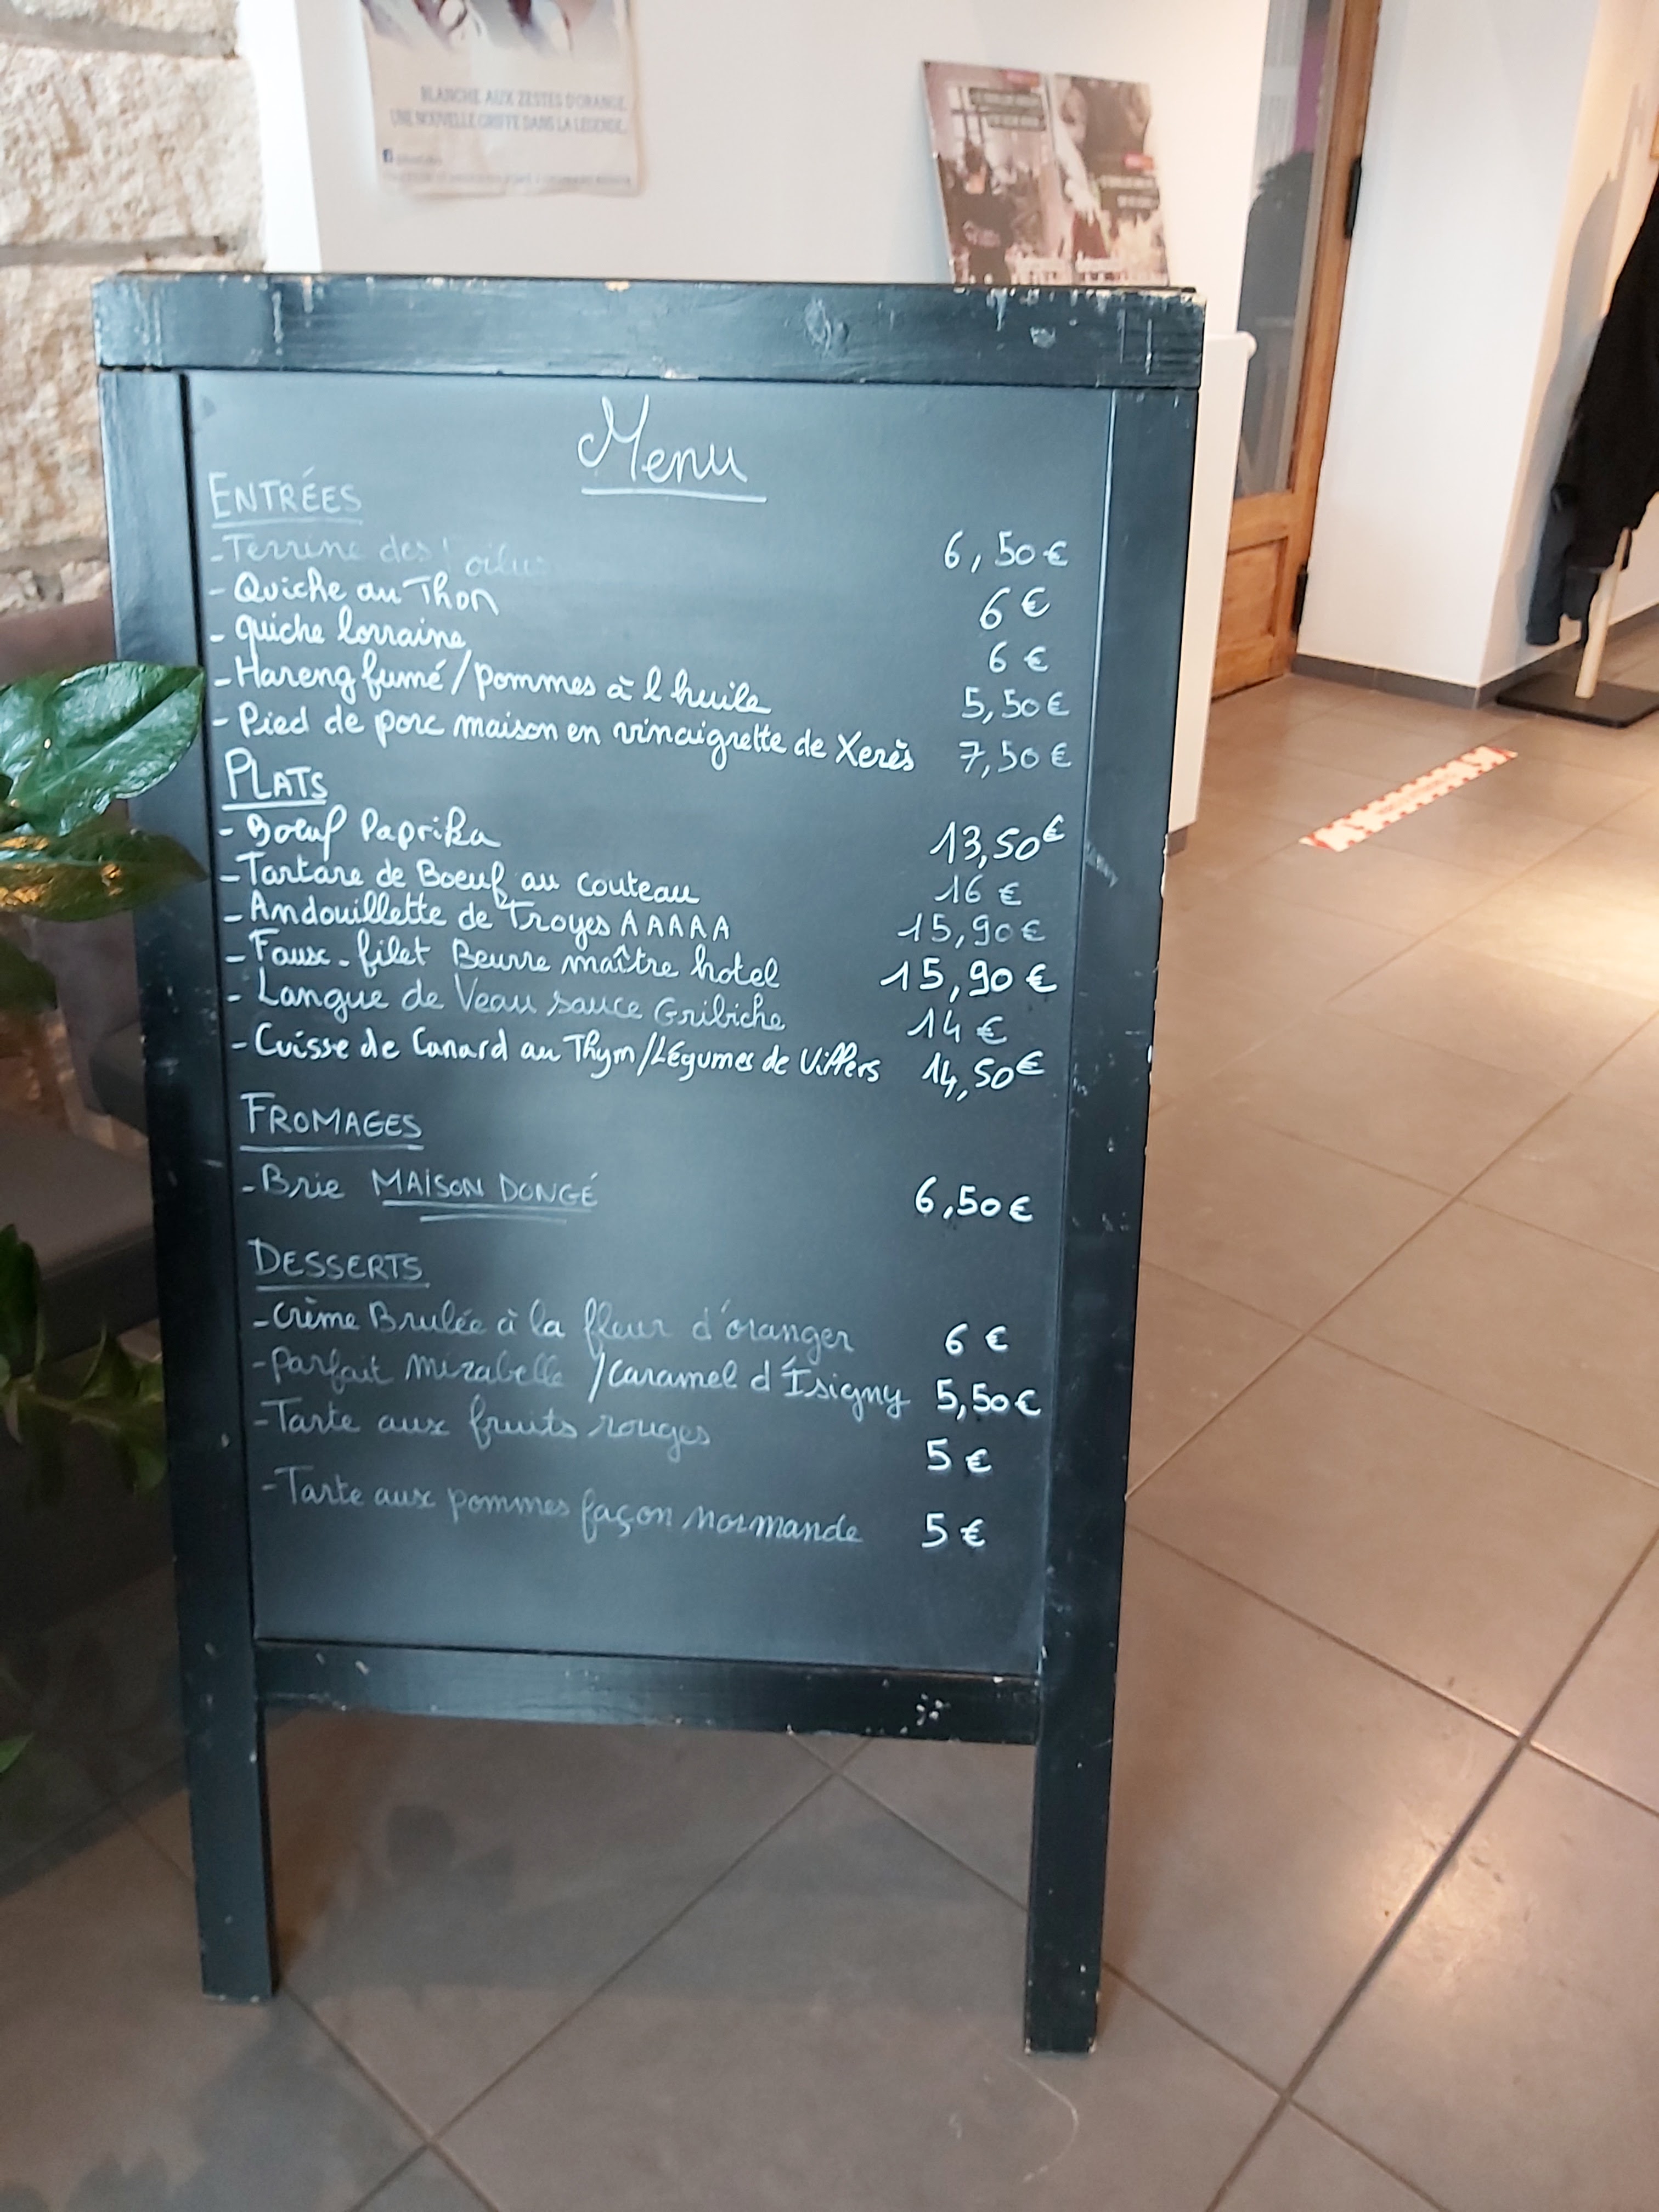 BLANCHE AUX ZESTES D'ORANGE.
UNE NOUVELLE GRIFFE DANS LA LÉGENDE.
Menu
ENTRÉES
- Terrine des 6,50 €
- Quiche au Thon 6 €
- quiche lorraine 6 €
- Hareng fumé / pommes à l huile 5,50 €
- Pied de porc maison en vinaigrette de Xerès 7,50 €
PLATS
- Boeuf Paprika 13,50 €
- Tartare de Boeuf au couteau 16 €
- Andouillette de Troyes AAAAA 15,90 €
- Faux-filet Beurre maître hotel 15,90 €
- Langue de Veau sauce Gribiche 14 €
- Cuisse de Canard au Thym / Légumes de 14,50 €
FROMAGES
- Brie MAISON DONGÉ 6,50 €
DESSERTS
- Crème Brulée à la fleur d'oranger 6 €
- Parfait mirabelle / Caramel d'Isigny 5,50 €
- Tarte aux fruits rouges 5 €
- Tarte aux pommes façon normande 5 €